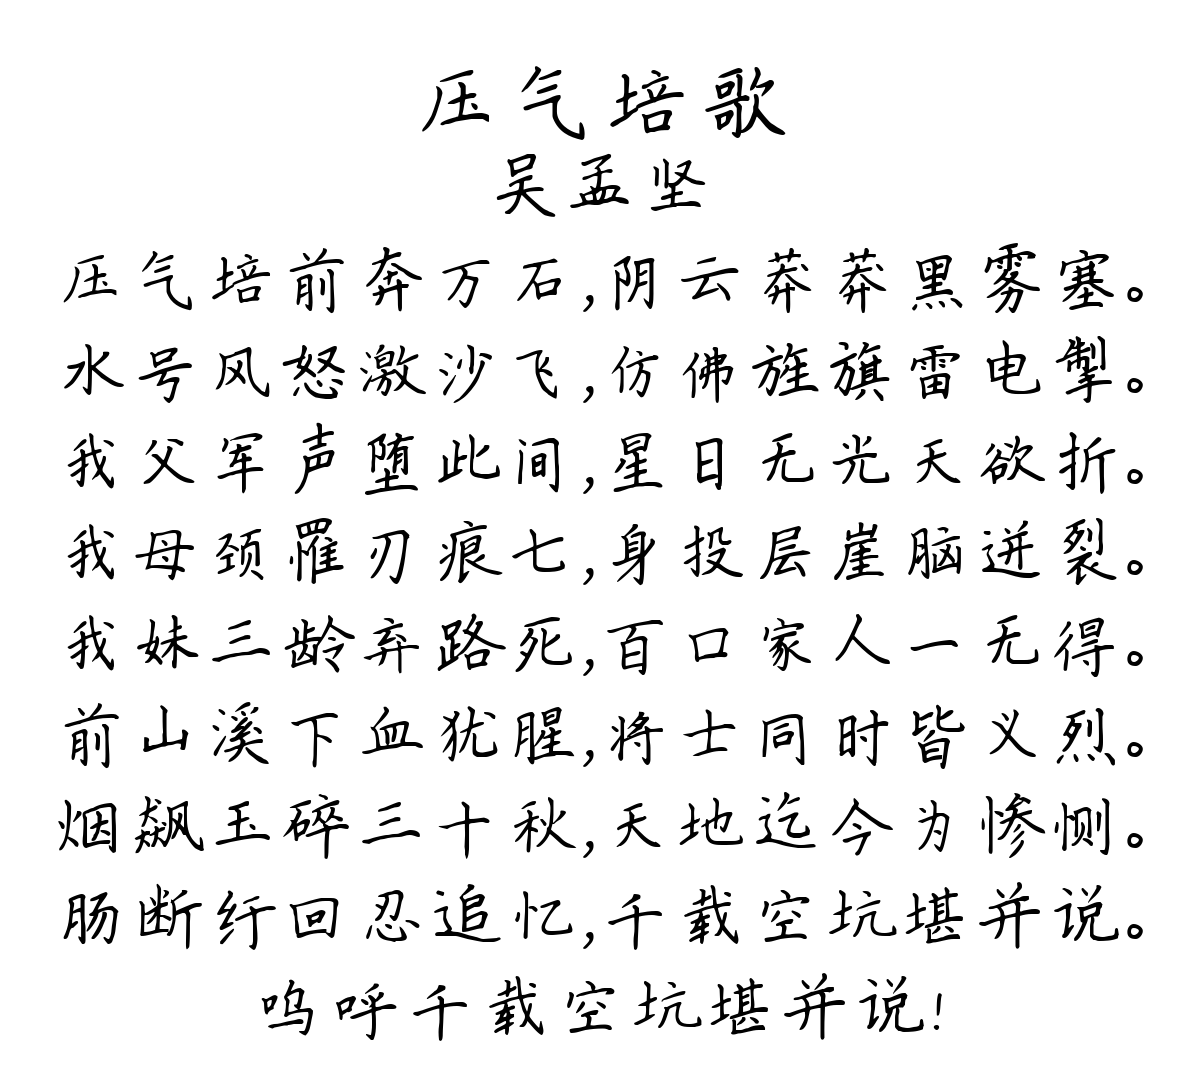 压气培歌
吴孟坚
压气培前奔万石,阴云莽莽黑雾塞。
水号风怒激沙飞,仿佛旌旗雷电掣。
我父军声堕此间,星日无光天欲折。
我母颈罹刃痕七,身投层崖脑迸裂。
我妹三龄弃路死,百口家人一无得。
前山溪下血犹腥,将士同时皆义烈。
烟飙玉碎三十秋,天地迄今为惨恻。
肠断纡回忍追忆,千载空坑堪并说。
呜呼千载空坑堪并说!